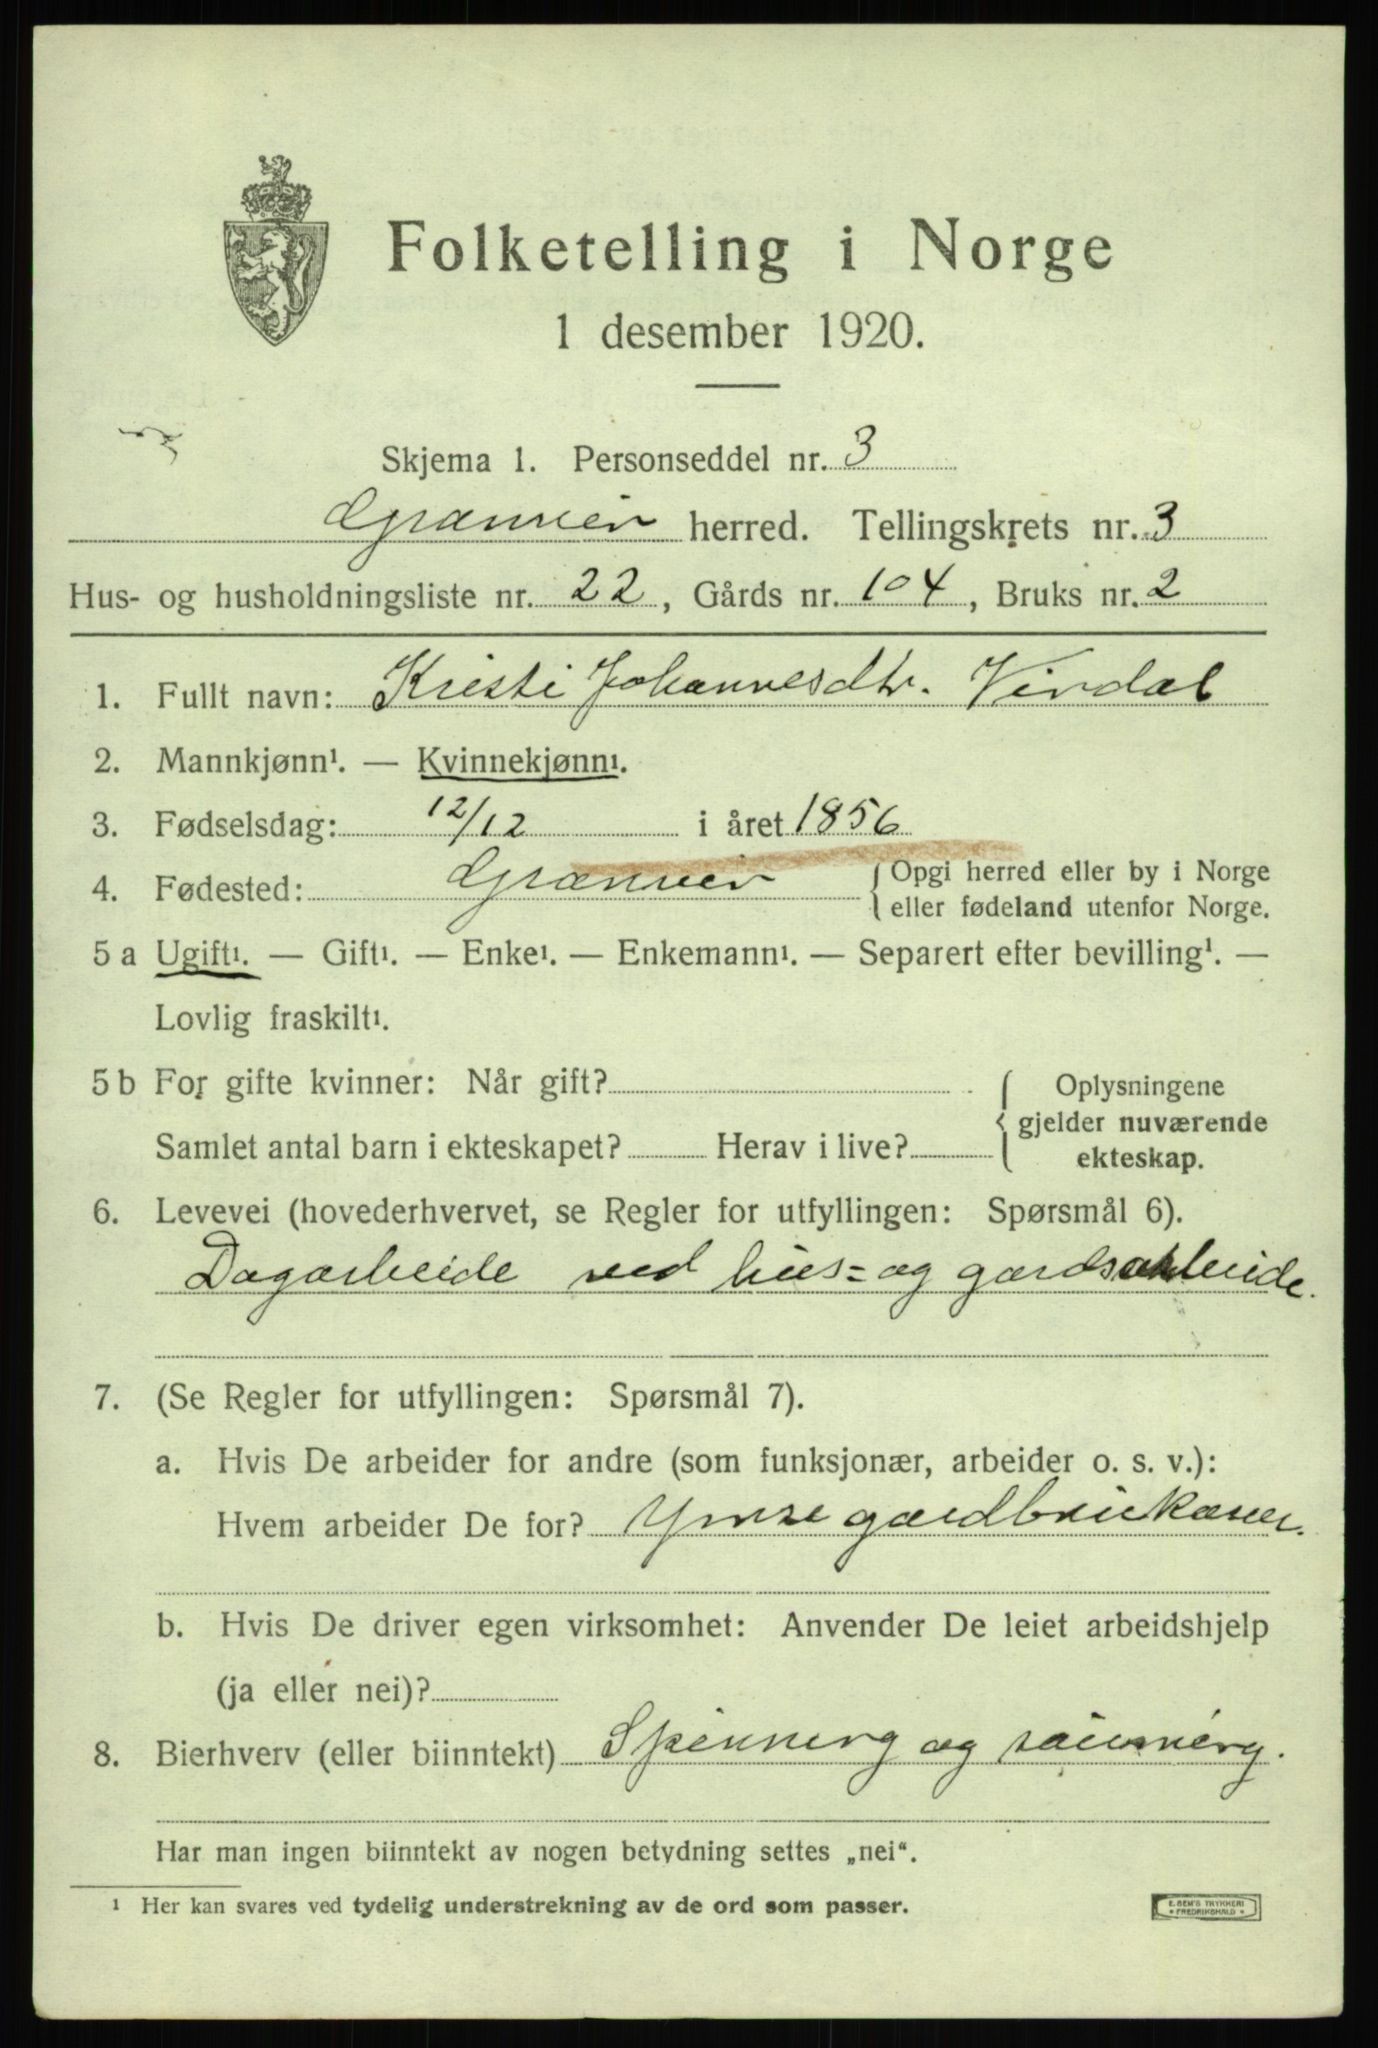 Folketelling i Norge
1 desember 1920.
Skjema 1. Personseddel nr. 3
Granvin herred. Tellingskrets nr. 3
Hus- og husholdningsliste nr. 22, Gårds nr. 104, Bruks nr. 2
1. Fullt navn: Kristi Johannesdtr. Virdal
2. Mannkjønn¹. — Kvinnekjønn¹.
3. Fødselsdag: 12/12 i året 1856
4. Fødested: Granvin { Opgi herred eller by i Norge
eller fødeland utenfor Norge.
5 a Ugift¹. — Gift¹. — Enke¹. — Enkemann¹. — Separert efter bevilling¹. —
Lovlig fraskilt¹.
5 b For gifte kvinner: Når gift? { Oplysningene
gjelder nuværende
Samlet antal barn i ekteskapet? Herav i live?
ekteskap.
6. Levevei (hovederhvervet, se Regler for utfyllingen: Spørsmål 6).
Dagarbeide ved hus- og gardsarbeide.
7. (Se Regler for utfyllingen: Spørsmål 7).
a. Hvis De arbeider for andre (som funksjonær, arbeider o. s. v.):
Hvem arbeider De for? Ymse gardbrukarar.
b. Hvis De driver egen virksomhet: Anvender De leiet arbeidshjelp
(ja eller nei)?
8. Bierhverv (eller biinntekt) Spinning og sauming.
Har man ingen biinntekt av nogen betydning settes „nei“.
¹ Her kan svares ved tydelig understrekning av de ord som passer.
E. SEM'S TRYKKERI
• FREDRIKSHALD •